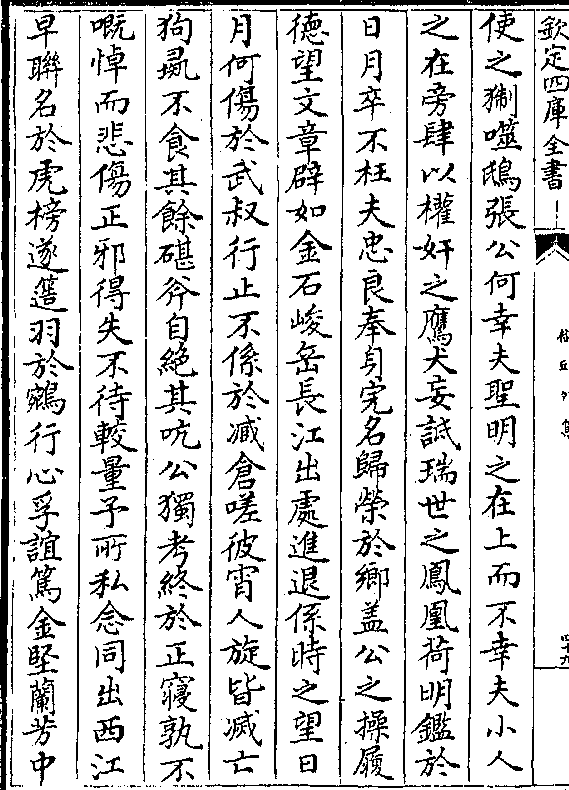 欽定四庫全書
使之猘噬鴟張公何幸夫聖明之在上而不幸夫小人
之在旁肆以權奸之鷹犬妄詆瑞世之鳳凰荷明鑑於
日月卒不枉夫忠良奉身完名歸榮於鄉盖公之操履
德望文章辟如金石峻岳長江出處進退係時之望日
月何傷於武叔行止不係於臧倉嗟彼宵人旋皆滅亡
狗彘不食其餘碪斧自絕其吭公獨考終於正寢孰不
嘅悼而悲傷正邪得失不待較量予所私念同出西江
早聯名於虎榜遂簉羽於鵷行心孚誼篤金堅蘭芳中